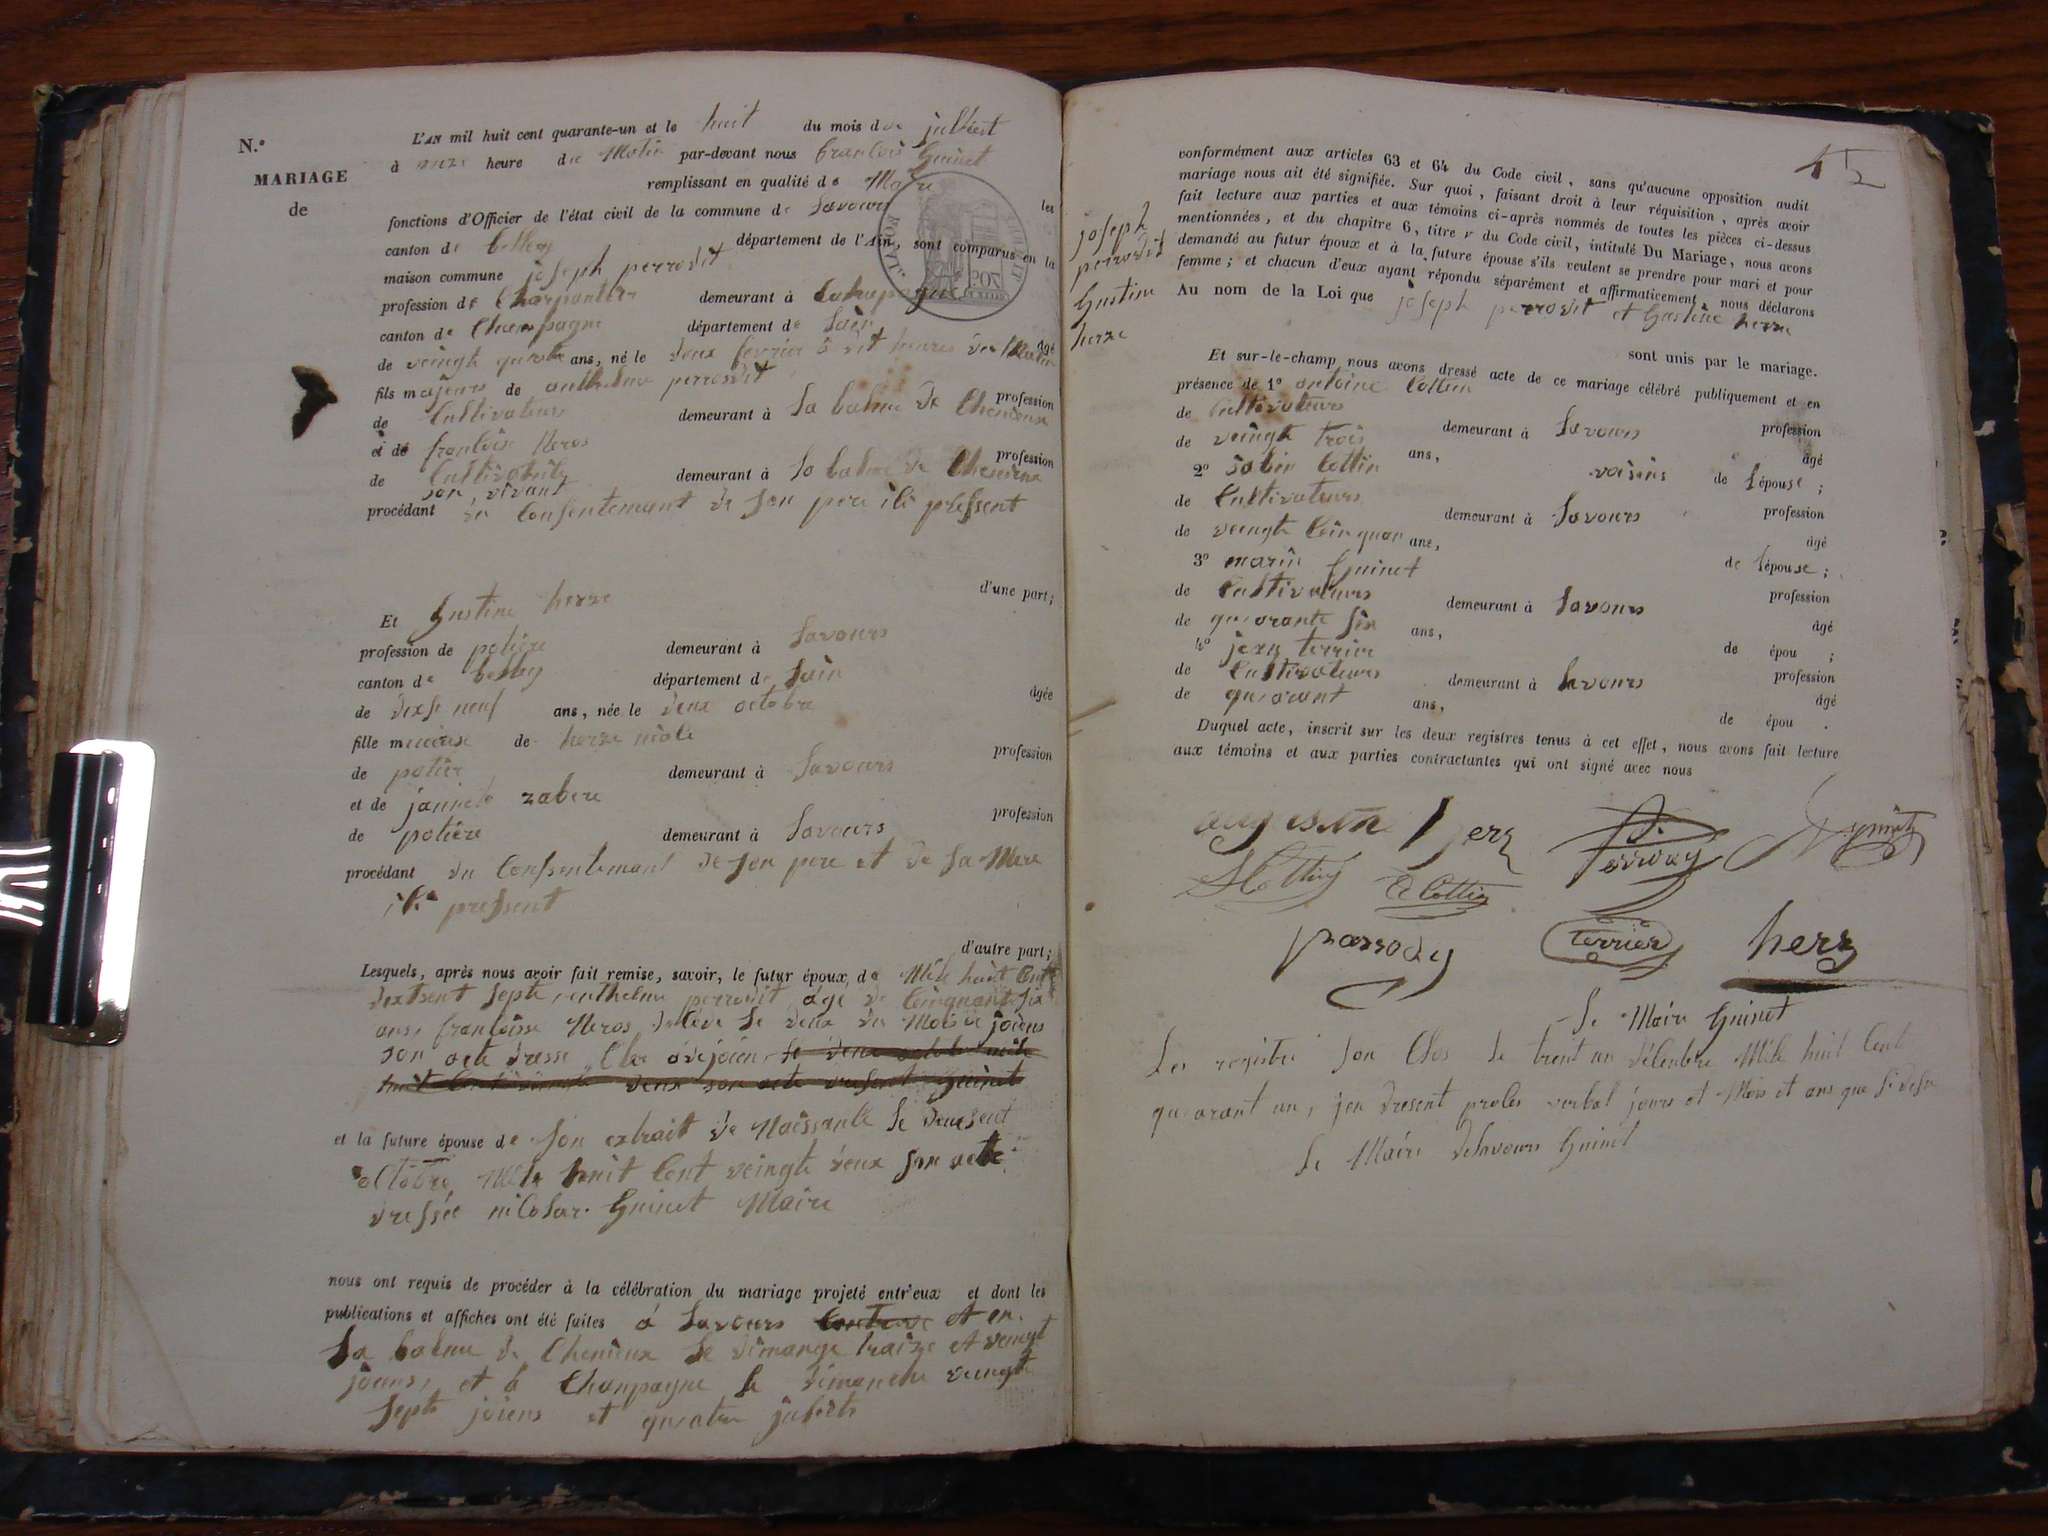 N.º
MARIAGE
de
L'AN mil huit cent quarante-un et le huit du mois de julliest
à onze heure de Matin par-devant nous francois Guinet
remplissant en qualité de Maire les
fonctions d'Officier de l'état civil de la commune de Savours
canton de belley département de l'Ain, sont comparus en la
maison commune joseph perrodit
profession de Charpantier demeurant à
canton de Champagne département de Lain âgé
de veingt quatre ans, né le deux fevrier à dit heures du Matin
fils majeur de anthelme perrodit profession
de Cultivateur demeurant à La balme de Chenieux
et de francoise Neros profession
de Cultivatrice demeurant à La balme de Chenieux
son vivant
procédant du Consentemant de son pere ici pressent
d'une part;
Et Gustine herze
profession de potière demeurant à Savours
canton de belley département de Lain âgée
de dixse neuf ans, née le deux octobre
fille mineure de herze nicola profession
de potier demeurant à Savours
et de jannete zabere profession
de potière demeurant à Savours
procédant du Consentemant de son pere et de sa Mere
ici pressent
d'autre part;
Lesquels, après nous avoir fait remise, savoir, le futur époux, de Mile huit Cent
dixtsent septe anthelme perrodit âge de Cinquant six
ans, françoisse Neros le deux du Mois de joiens
son acte dresse le deux octobre mile
huit Cent deux son acte Guinet
et la future épouse de son extrait de Naissance le
octobre Mile huit Cent veingte deux son acte
dressée nicolas Guinet Maire
nous ont requis de procéder à la célébration du mariage projeté entr'eux et dont les
publications et affiches ont été faites à Savours et en
La balme de Chenieux le dimange traize et veingt
joiens, et à Chanpagne le dimanche veingt
septe joiens et quatre juliets
15
joseph
perrodit
Gustine
herze
conformément aux articles 63 et 64 du Code civil, sans qu'aucune opposition audit
mariage nous ait été signifiée. Sur quoi, faisant droit à leur réquisition, après avoir
fait lecture aux parties et aux témoins ci-après nommés de toutes les pièces ci-dessus
mentionnées, et du chapitre 6, titre v du Code civil, intitulé Du Mariage, nous avons
demandé au futur époux et à la future épouse s'ils veulent se prendre pour mari et pour
femme; et chacun d'eux ayant répondu séparément et affirmativement, nous déclarons
Au nom de la Loi que joseph perrodit et Gustine herze
sont unis par le mariage.
Et sur-le-champ nous avons dressé acte de ce mariage célébré publiquement et en
présence de 1º antoine Cottin profession
de Cultivateurs demeurant à Savours âgé
de veingte trois ans, voisins de lépouse;
2º sabin Cottin profession
de Cultivateurs demeurant à Savours âgé
de veingte Cinquan ans, de lépouse;
3º marin Guinet profession
de Cultivateurs demeurant à Savours âgé
de quarante six ans, de épou ;
4º jean terrier profession
de Cultivateurs demeurant à Savours âgé
de quarant ans, de épou .
Duquel acte, inscrit sur les deux registres tenus à cet effet, nous avons fait lecture
aux témoins et aux parties contractantes qui ont signé avec nous
Guinet
S Cottin Cottin
parrody terrier herz
Le Maire Guinet
Les registre son Clos le trent un décenbre Mile huit Cent
quarant un, jen dresent proses verbal jours et Mois et ans que si desu
Le Maire deSavours Guinet